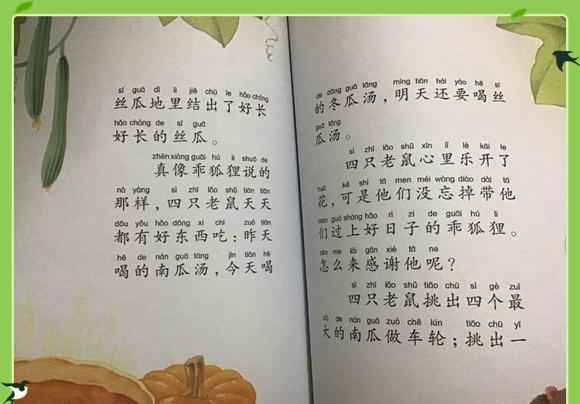 sī guā dì li jiē chū le hǎo cháng
丝瓜地里结出了好长
hǎo cháng de sī guā
好长的丝瓜。
zhēn xiàng guāi hú li shuō de
真像乖狐狸说的
nà yàng sì zhī lǎo shǔ tiān tiān
那样，四只老鼠天天
dōu yǒu hǎo dōng xi chī zuó tiān
都有好东西吃：昨天
hē de nán guā tāng jīn tiān hē
喝的南瓜汤，今天喝
de dōng guā tāng míng tiān hái yào hē sī
的冬瓜汤，明天还要喝丝
guā tāng
瓜汤。
sì zhī lǎo shǔ xīn lǐ lè kāi le
四只老鼠心里乐开了
huā kě shì tā men méi wàng diào dài tā
花，可是他们没忘掉带他
men guò shàng hǎo rì zi de guāi hú li
们过上好日子的乖狐狸。
zěn me lái gǎn xiè tā ne
怎么来感谢他呢？
sì zhī lǎo shǔ tiāo chū sì gè zuì
四只老鼠挑出四个最
dà de nán guā zuò chē lún tiāo chū yī
大的南瓜做车轮；挑出一